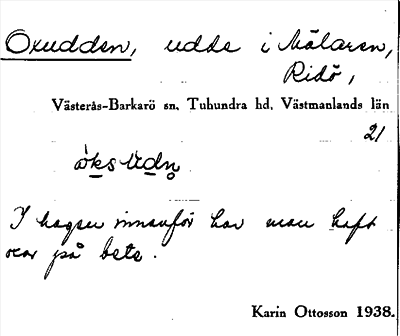 Oxudden, udde i Mälaren,
Ridö,
Västerås-Barkarö sn. Tuhundra hd. Västmanlands län
21
I hagen innanför har man haft
oxar på bete.
Karin Ottosson 1938.